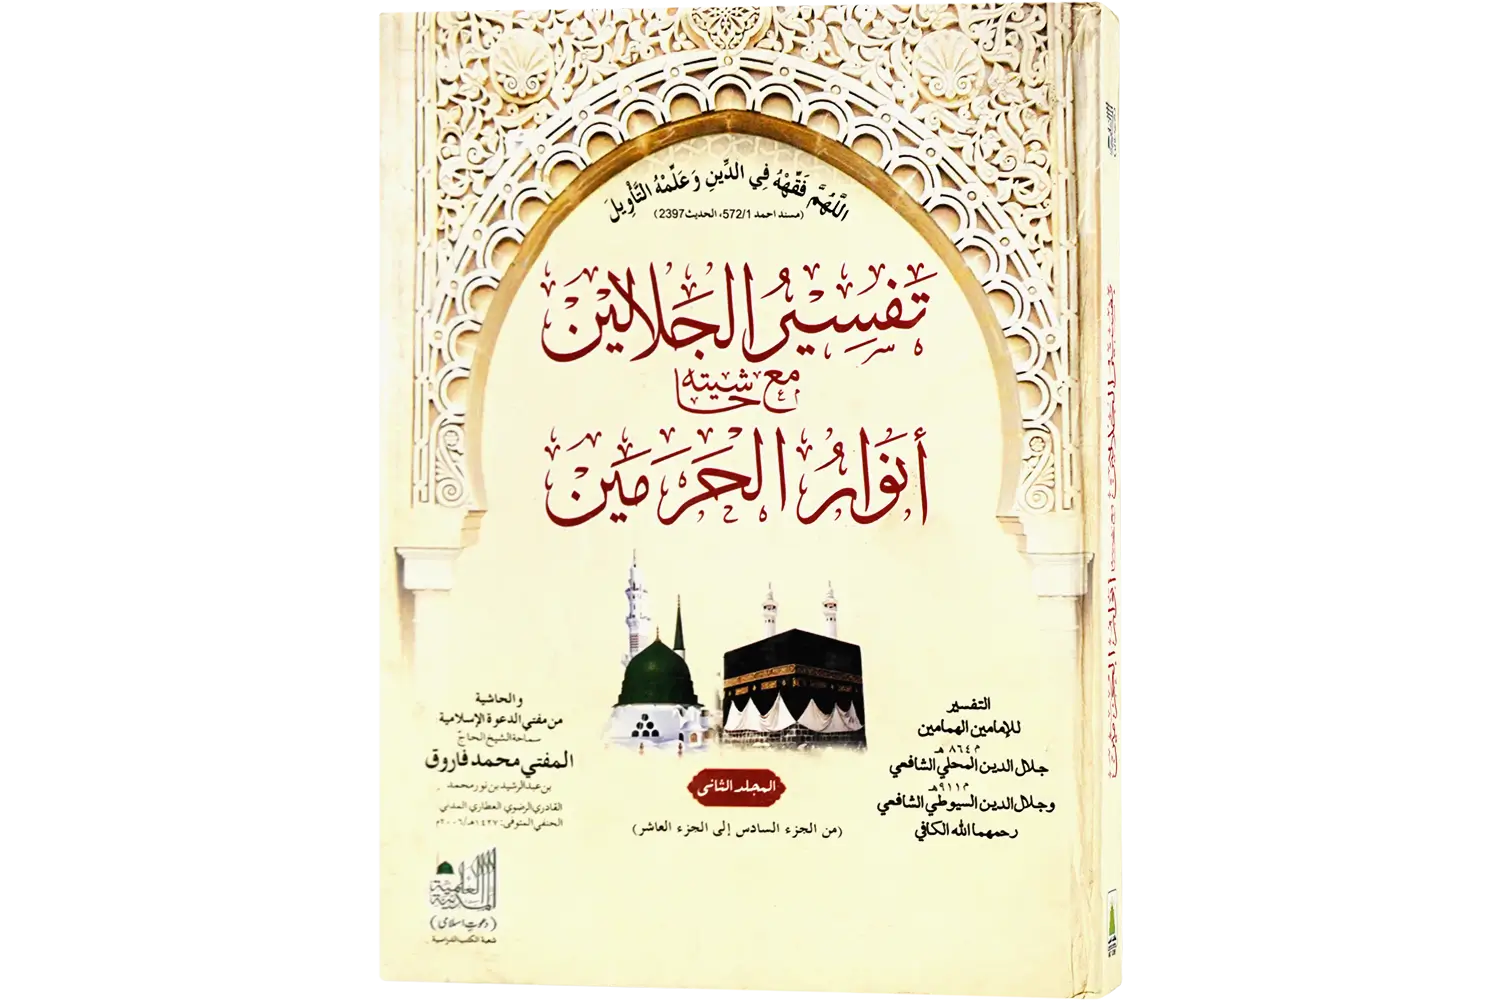 اللَّهُمَّ فَقِّهْهُ فِي الدِّينِ وَعَلِّمْهُ التَّأْوِيلَ
(مسند احمد 572/1، الحديث 2397)
تَفْسِيرُ الجَلَالَين
مع حاشيته
أَنوَارُ الحَرَمَين
التفسير
للإمامين الهمامين
م ٨٦٤ هـ
جلال الدين المحلي الشافعي
م ٩١١ هـ
وجلال الدين السيوطي الشافعي
رحمهما الله الكافي
و الحاشية
من مفتي الدعوة الإسلامية
سماحة الشيخ الحاجّ
المفتي محمد فاروق
بن عبد الرشيد بن نور محمد
القادري الرضوي العطاري المدني
الحنفي المتوفى: ١٤٢٧هـ/٢٠٠٦م
المجلد الثاني
(من الجزء السادس إلى الجزء العاشر)
المدينة العلمية
(دعوتِ اسلامی)
شعبة الكتب الدراسية